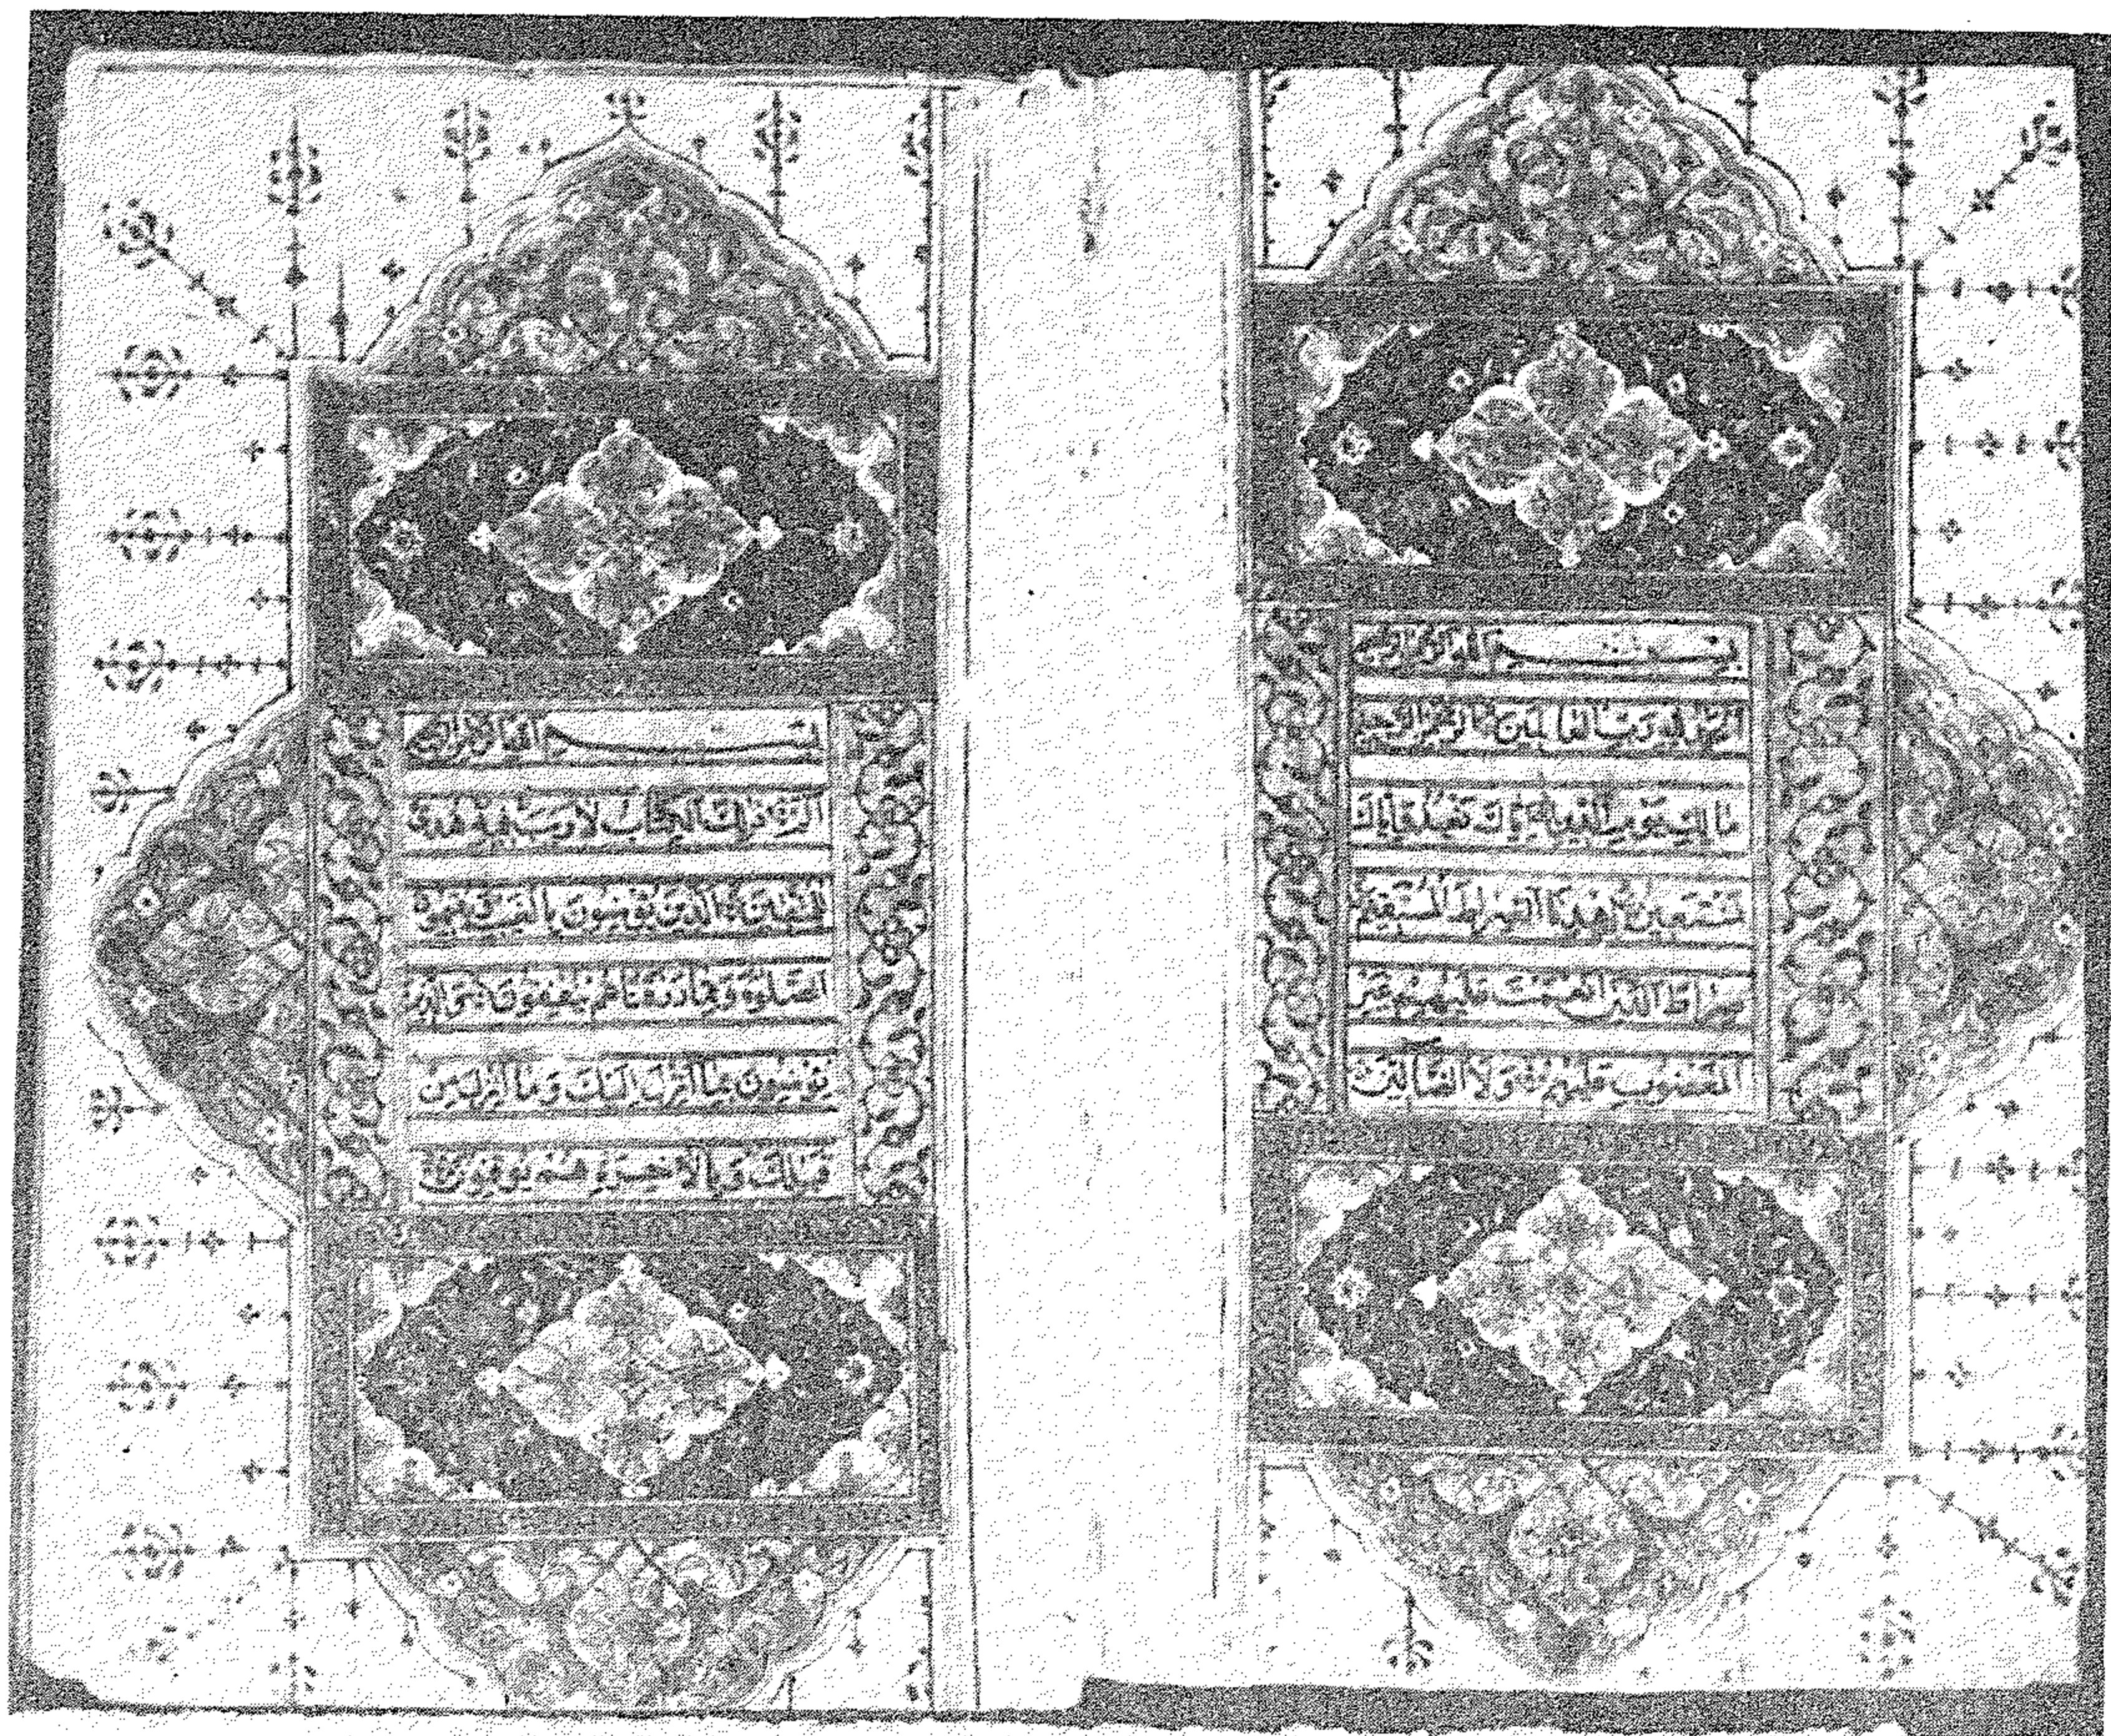 بسم الله الرحمن الرحيم
الحمد لله رب العالمين الرحمن الرحيم
مالك يوم الدين اياك نعبد واياك
نستعين اهدنا الصراط المستقيم
صراط الذين انعمت عليهم غير
المغضوب عليهم ولا الضالين
بسم الله الرحمن الرحيم
الم ذلك الكتاب لا ريب فيه هدى
للمتقين الذين يؤمنون بالغيب ويقيمون
الصلوة ومما رزقناهم ينفقون والذين
يؤمنون بما انزل اليك وما انزل من
قبلك وبالاخرة هم يوقنون